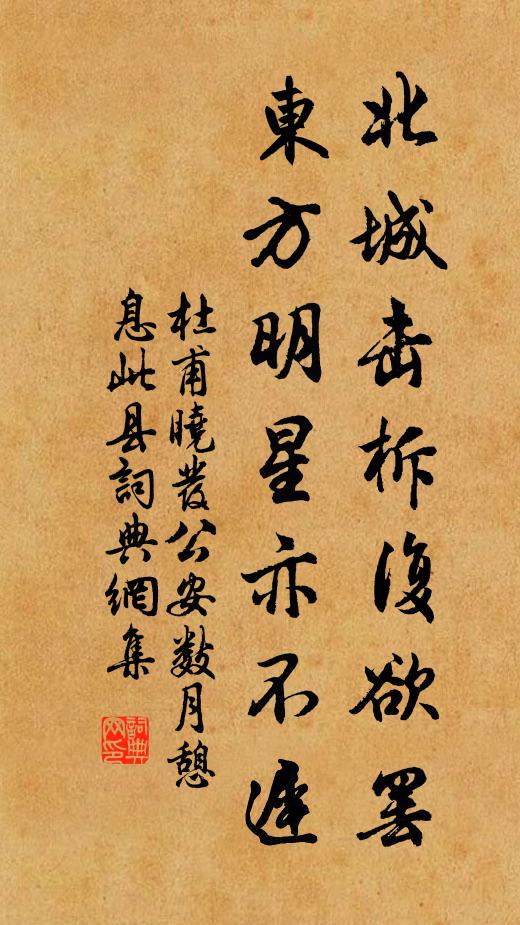 北城击柝復欲罢
東方明星亦不遲
杜甫曉發公安數月憩
息此县詞典網集
詞典网印